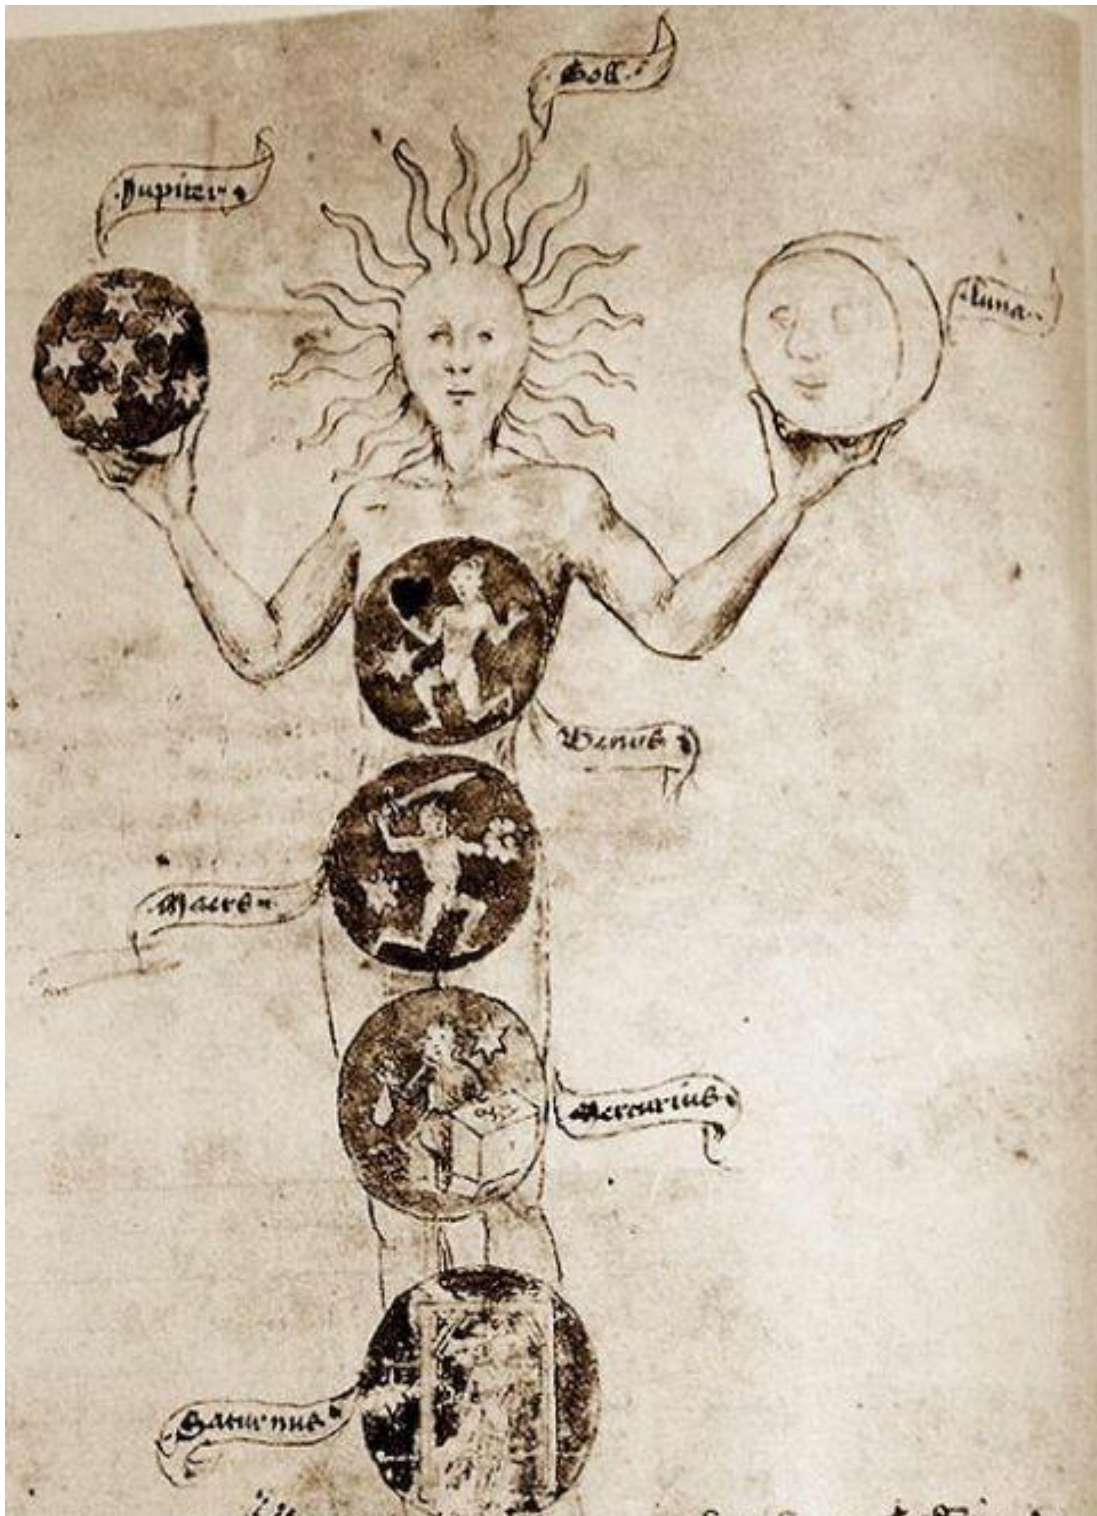 Soll
Jupiter
luna
Venus
Maers
Mercurius
Saturnus